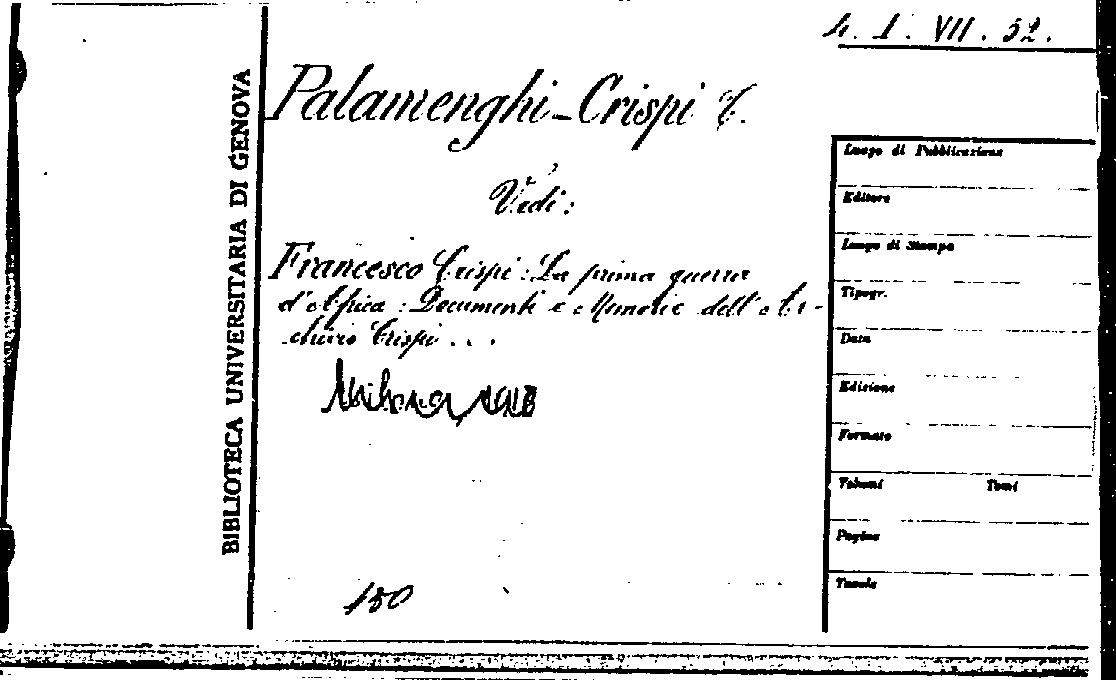 4. I. VII. 52.
BIBLIOTECA UNIVERSITARIA DI GENOVA
Palamenghi-Crispi T.
Vedi:
Francesco Crispi: La prima guerra
d'Africa: Documenti e Memorie dell'Ar-
chivio Crispi...
Milano,
150
Luogo di Pubblicazione
Editore
Luogo di Stampa
Tipogr.
Data
Edizione
Formato
Volumi Tomi
Pagine
Tavole